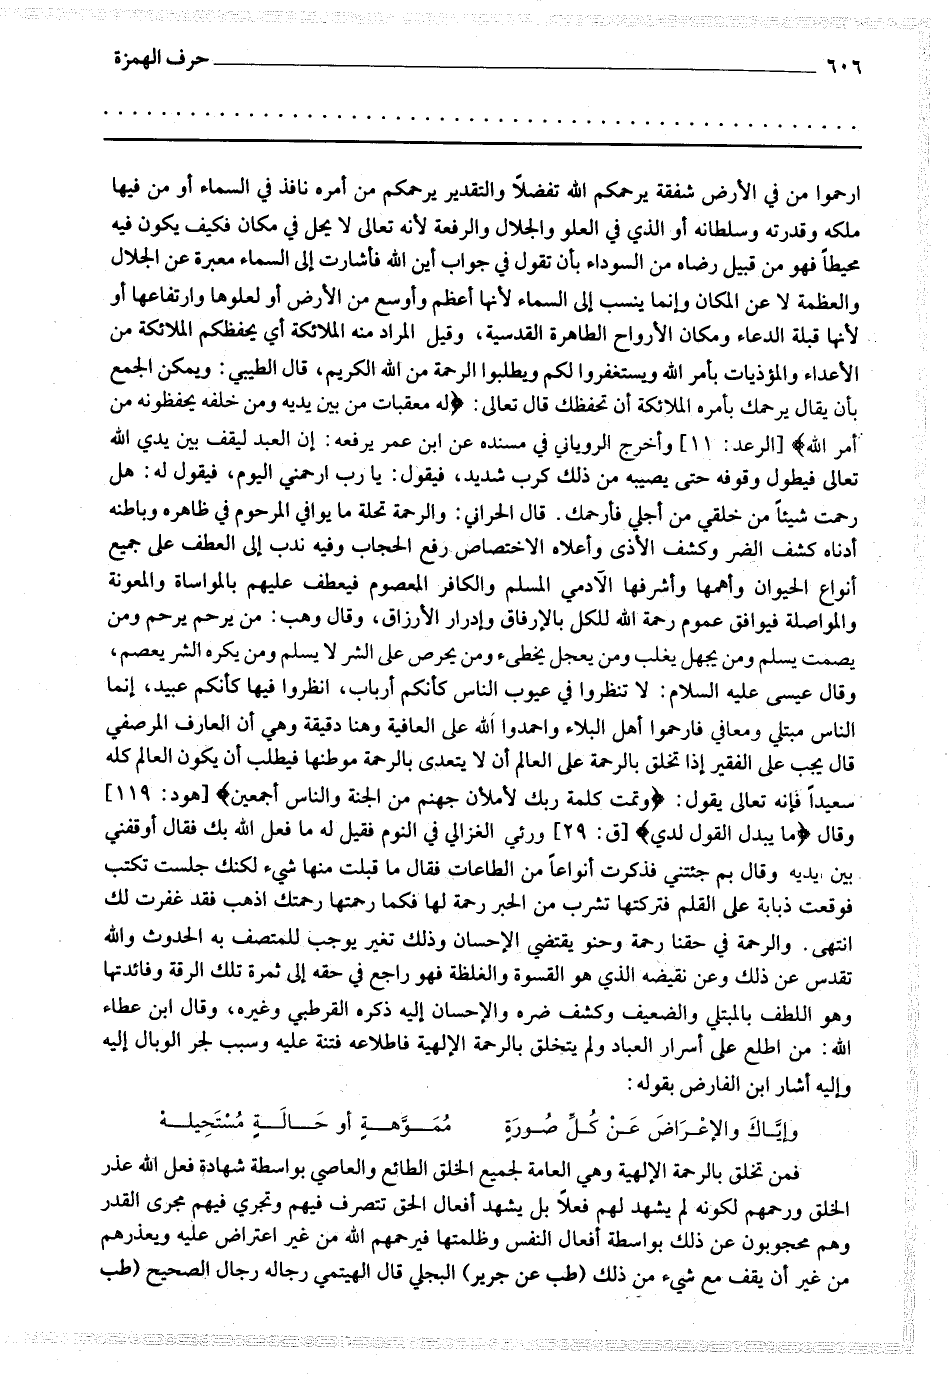 ٦٠٦ حرف الهمزة
ارحموا من في الأرض شفقة يرحمكم الله تفضلاً والتقدير يرحمكم من أمره نافذ في السماء أو من فيها
ملكه وقدرته وسلطانه أو الذي في العلو والجلال والرفعة لأنه تعالى لا يحل في مكان فكيف يكون فيه
محيطاً فهو من قبيل رضاه من السوداء بأن تقول في جواب أين الله فأشارت إلى السماء معبرة عن الجلال
والعظمة لا عن المكان وإنما ينسب إلى السماء لأنها أعظم وأوسع من الأرض أو لعلوها وارتفاعها أو
لأنها قبلة الدعاء ومكان الأرواح الطاهرة القدسية، وقيل المراد منه الملائكة أي يحفظكم الملائكة من
الأعداء والمؤذيات بأمر الله ويستغفروا لكم ويطلبوا الرحمة من الله الكريم، قال الطيبي: ويمكن الجمع
بأن يقال يرحمك بأمره الملائكة أن تحفظك قال تعالى: ﴿له معقبات من بين يديه ومن خلفه يحفظونه من
أمر الله﴾ [الرعد: ١١] وأخرج الروياني في مسنده عن ابن عمر يرفعه: إن العبد ليقف بين يدي الله
تعالى فيطول وقوفه حتى يصيبه من ذلك كرب شديد، فيقول: يا رب ارحمني اليوم، فيقول له: هل
رحمت شيئاً من خلقي من أجلي فأرحمك. قال الحراني: والرحمة تحلة ما يوافي المرحوم في ظاهره وباطنه
أدناه كشف الضر وكشف الأذى وأعلاه الاختصاص رفع الحجاب وفيه ندب إلى العطف على جميع
أنواع الحيوان وأهمها وأشرفها الآدمي المسلم والكافر المعصوم فيعطف عليهم بالمواساة والمعونة
والمواصلة فيوافق عموم رحمة الله للكل بالإرفاق وإدرار الأرزاق، وقال وهب: من يرحم يرحم ومن
يصمت يسلم ومن يجهل يغلب ومن يعجل يخطىء ومن يحرص على الشر لا يسلم ومن يكره الشر يعصم،
وقال عيسى عليه السلام: لا تنظروا في عيوب الناس كأنكم أرباب، انظروا فيها كأنكم عبيد، إنما
الناس مبتلي ومعافي فارحموا أهل البلاء واحمدوا الله على العافية وهنا دقيقة وهي أن العارف المرصفي
قال يجب على الفقير إذا تخلق بالرحمة على العالم أن لا يتعدى بالرحمة موطنها فيطلب أن يكون العالم كله
سعيداً فإنه تعالى يقول: ﴿وتمت كلمة ربك لأملأن جهنم من الجنة والناس أجمعين﴾ [هود: ١١٩]
وقال ﴿ما يبدل القول لدي﴾ [ق: ٢٩] ورئي الغزالي في النوم فقيل له ما فعل الله بك فقال أوقفني
بين يديه وقال بم جئتني فذكرت أنواعاً من الطاعات فقال ما قبلت منها شيء لكنك جلست تكتب
فوقعت ذبابة على القلم فتركتها تشرب من الحبر رحمة لها فكما رحمتها رحمتك اذهب فقد غفرت لك
انتهى. والرحمة في حقنا رحمة وحنو يقتضي الإحسان وذلك تغير يوجب للمتصف به الحدوث والله
تقدس عن ذلك وعن نقيضه الذي هو القسوة والغلظة فهو راجع في حقه إلى ثمرة تلك الرقة وفائدتها
وهو اللطف بالمبتلي والضعيف وكشف ضره والإحسان إليه ذكره القرطبي وغيره، وقال ابن عطاء
الله: من اطلع على أسرار العباد ولم يتخلق بالرحمة الإلهية فاطلاعه فتنة عليه وسبب لجر الوبال إليه
وإليه أشار ابن الفارض بقوله:
وإيَّاكَ والإعْرَاضَ عَنْ كُلِّ صُورَةٍ مُمَوَّهَةٍ أو حَالَةٍ مُسْتَحِيلة
فمن تخلق بالرحمة الإلهية وهي العامة لجميع الخلق الطائع والعاصي بواسطة شهادة فعل الله عذر
الخلق ورحمهم لكونه لم يشهد لهم فعلاً بل يشهد أفعال الحق تتصرف فيهم وتجري فيهم مجرى القدر
وهم محجوبون عن ذلك بواسطة أفعال النفس وظلمتها فيرحمهم الله من غير اعتراض عليه ويعذرهم
من غير أن يقف مع شيء من ذلك (طب عن جرير) البجلي قال الهيتمي رجاله رجال الصحيح (طب